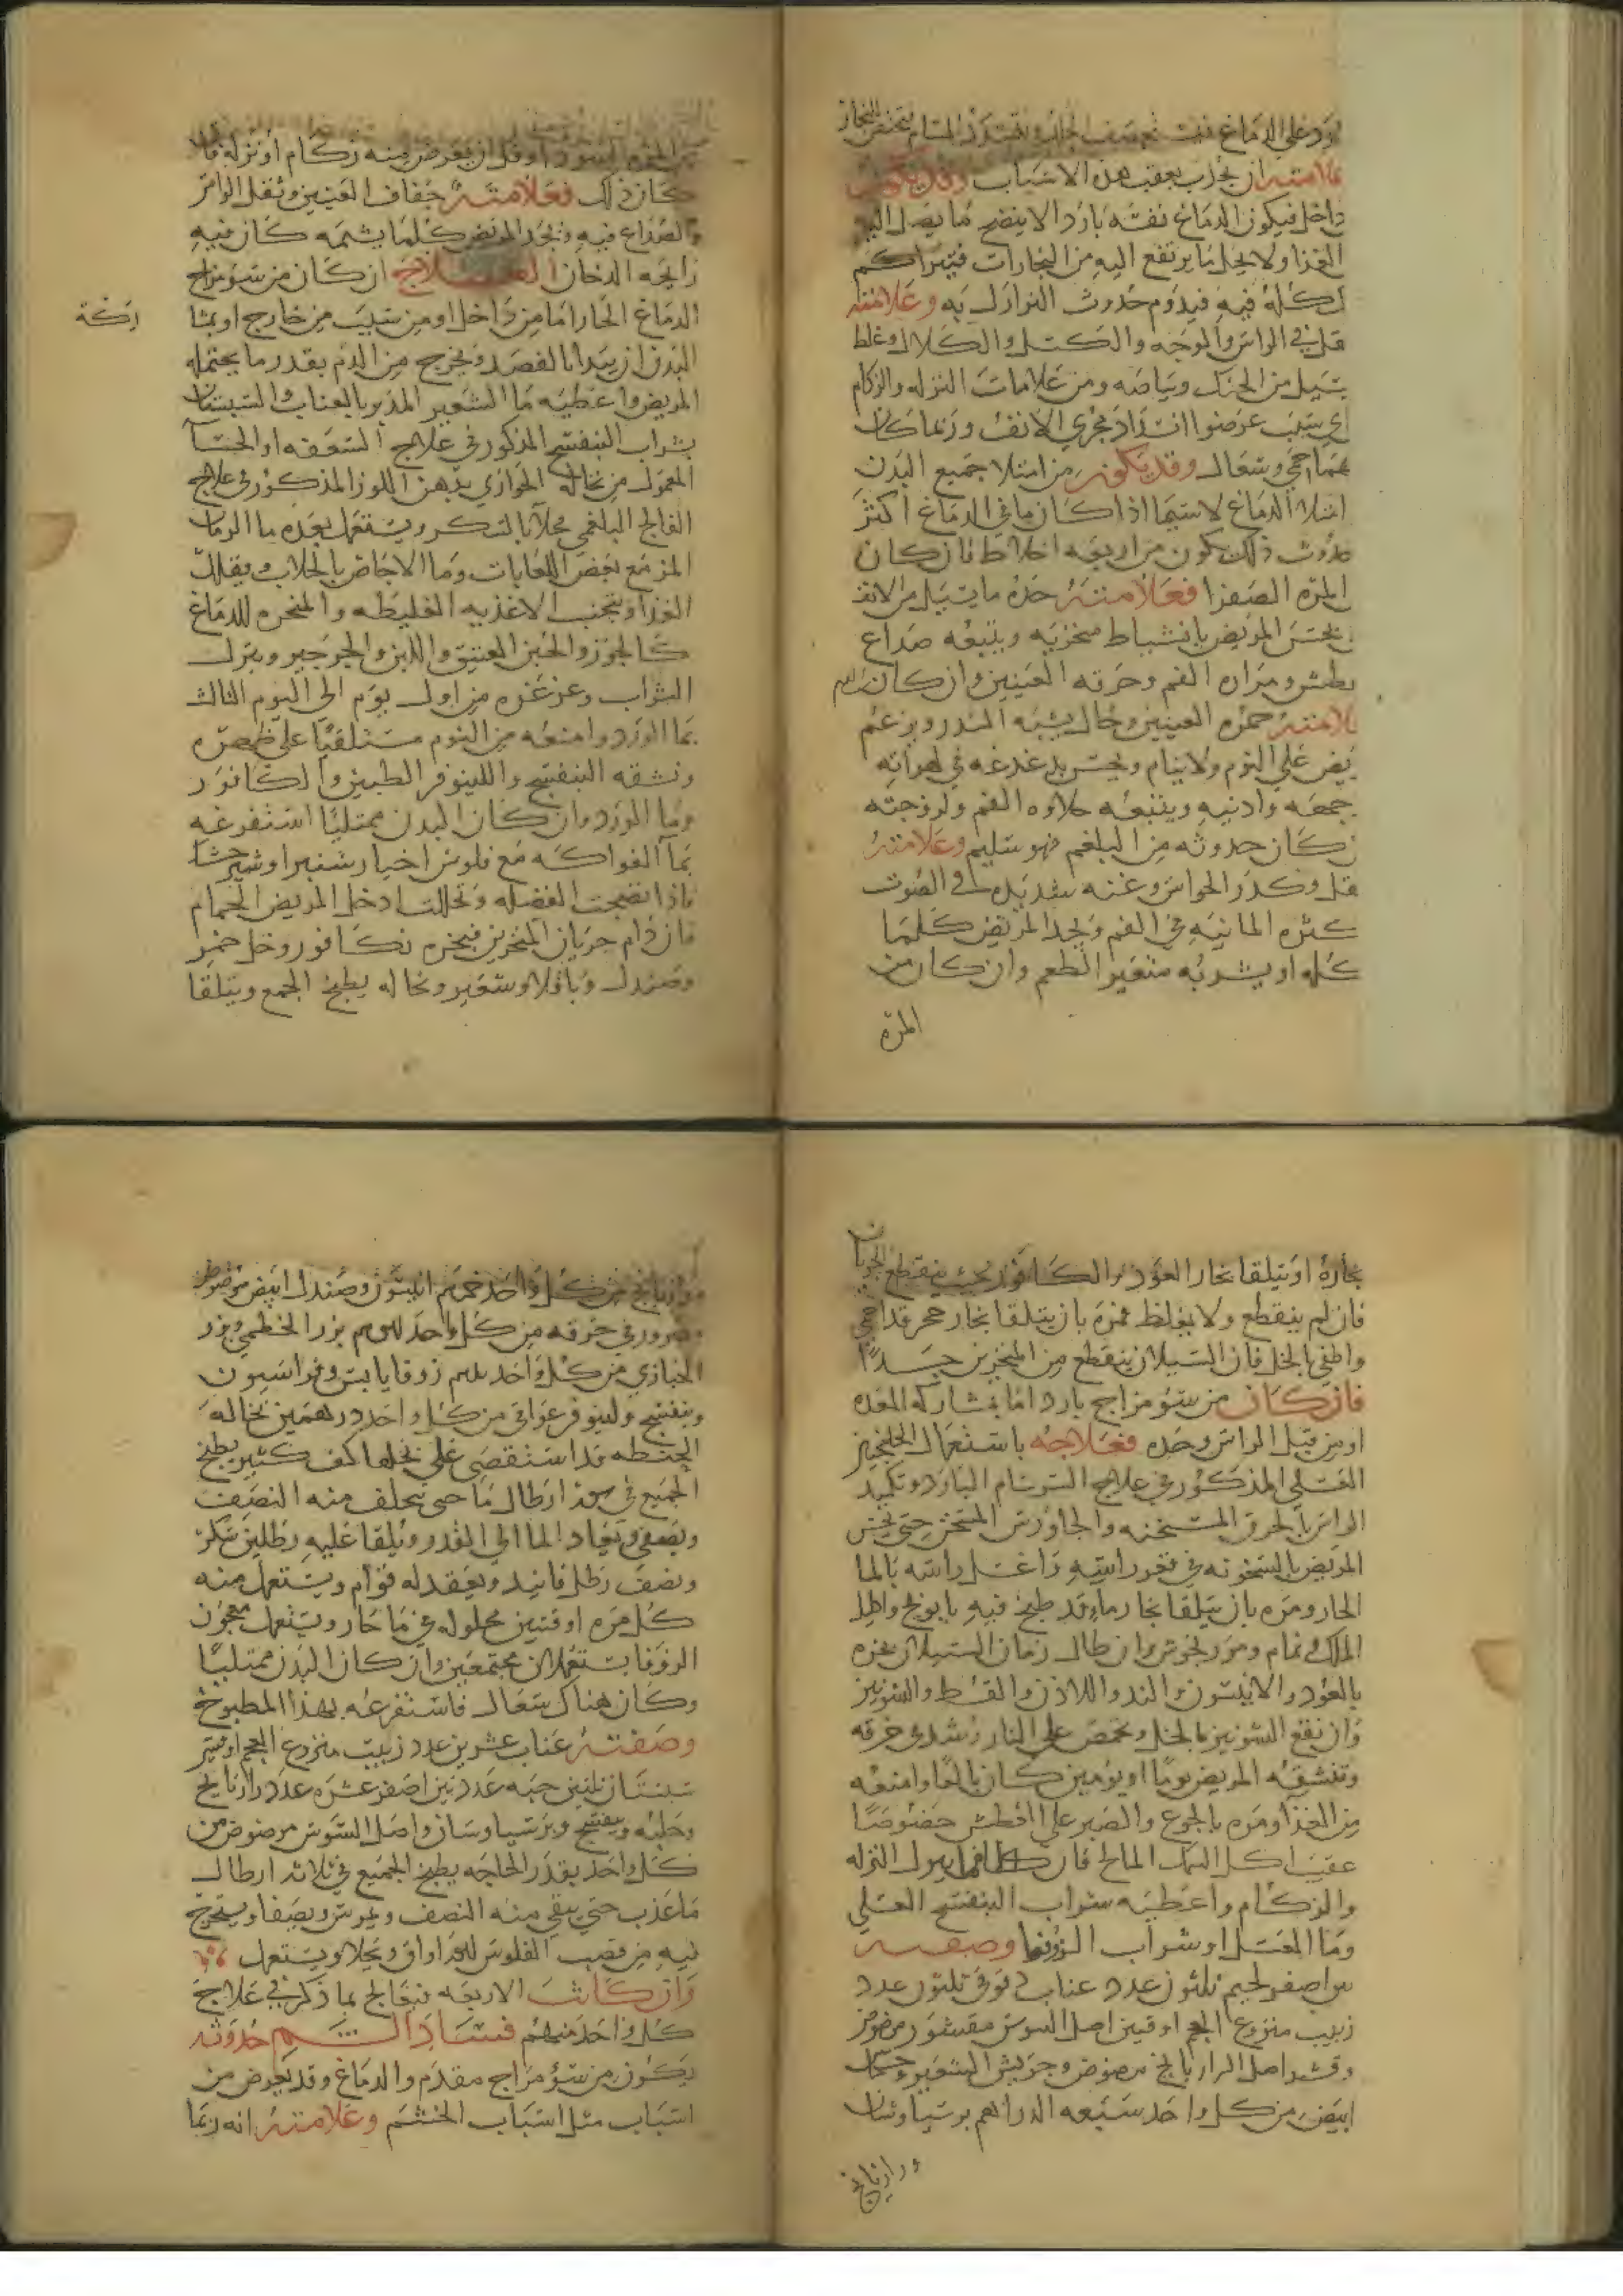 علامته ان يحدث بعقب هذه الاسباب وقد يكون من
داخل فيكون الدماغ نفسه باردا لا ينضج ما يصل اليه
الغذا ولا يحلل ما يرتفع اليه من البخارات فيتراكم
ذلك كله فيه فيدوم حدوث النوازل به وعلامته
ثقل في الراس والوجه والكسل والكلال وغلظ
يسيل من الحنك وبياضه ومن علامات النزله والزكام
اي سبب عرضوا انسداد مجرى الانف وربما كان
معهما حمى وسعال وقد يكون من امتلا جميع البدن
امتلا الدماغ لاسيما اذا كان ما في الدماغ اكثر
حدوث ذلك يكون من اربعه اخلاط فان كان
المره الصفرا فعلامته حده ما يسيل من الانف
يحس المريض بانشياط منخريه ويتبعه صداع
عطش ومراره الفم وحرقه العينين وان كان الدم
علامته حمره العينين وحال يشبه السدر ويزعم
المريض على النوم ولا ينام ويحس بدغدغه في لهواته
جبهته واذنيه ويتبعه حلاوه الفم ولزوجته
ان كان حدوثه من البلغم فهو سليم وعلامته
ثقل وكدر الحواس وغنه شديده في الصوت
كثره المائيه في الفم ويجد المريض كلما
ياكله او يشربه متغير الطعم وان كان من
المره
المره السودا وقل ان يعرض منه زكام او نزله فان
كان ذلك فعلامته جفاف العينين وثقل الراس
والصداع فيه ويجد المريض كلما يشمه كان فيه
رايحه الدخان العلاج ان كان من سو مزاج
الدماغ الحار اما من داخل او من سبب من خارج او امتلا
البدن ان يبتدا بالفصد ويخرج من الدم بقدر ما يحتمله
المريض واعطيه ما الشعير المدبر بالعناب والسبستان
بشراب البنفسج المذكور في علاج السعفه او الحسا
المعمول من نخاله الحوارى بدهن اللوز المذكور في علاج
الفالج البلغمي محلا بالسكر ويستعمل بعده ما الرمان
المز مع بعض اللعابات وما الاجاص بالجلاب ويقلل
الغذا ويتجنب الاغذيه الغليظه والمبخره للدماغ
كالجوز والجبن العتيق واللبن والجرجير ويترك
الشراب وغرغره من اول يوم الى اليوم الثالث
بما الورد وامنعه من النوم مستلقيا على ظهره
ونشقه البنفسج واللينوفر الطبيين والكافور
وما الورد وان كان البدن ممتليا استفرغه
بما الفواكه مع فلوس اخيار شنبر او شيرخشك
فاذا نضجت الفضله وتحللت ادخل المريض الحمام
فان دام جريان المنخرين فبخره بكافور وخل خمر
وصندل وباقلا وشعير ونخاله يطبخ الجمع ويتلقا
بخاره او يتلقا بخار العود والكافور بحيث ينقطع الجريان
فان لم ينقطع ولا يغلظ فمره بان يتلقا بخار حجر قد احمي
واطفي بالخل فان السيلان ينقطع من المنخرين جيدا
فان كان من سو مزاج بارد اما بمشاركه المعده
او من قبل الراس وحده فعلاجه باستعمال الجلنجبين
العسلي المذكور في علاج السرسام البارد وتكميد
الراس بالخرق المسخنه والجاورس المسخن حتى يحس
المريض بالسخونه في قعر راسه واغسل راسه بالما
الحار ومره بان يتلقا بخار ماء قد طبخ فيه بابونج واكليل
الملك ونمام ومرزنجوش وان طال زمان السيلان بخره
بالعود والانيسون والند واللاذن والقسط والشونيز
وان نقع الشونيز بالخل وتحمص على النار وشد في خرقه
وتنشقه المريض يوما او يومين كان بالغا وامنعه
من الغذا ومره بالجوع والصبر على العطش خصوصا
عقيب اكل السمك المالح فان كلاهما يزول النزله
والزكام واعطيه شراب البنفسج العسلي
وما العسل او شراب الزوفا وصفته
تين اصفر لحيم ثلثون عدد عناب ثلثون عدد
زبيب منزوع العجم اوقيتين اصل السوس مقشور مرضوض
وقشر اصل الرازيانج مرضوض وجريش الشعير وخشخاش
ابيض من كل واحد سبعه الدراهم برسياوشان
ورازيانج
ورازيانج من كل واحد انيسون وصندل ابيض مرضوض
مصرور في خرقه من كل واحد بزر الخطمي وبزر
الخبازي من كل واحد زوفا يابس وفراسيون
وبنفسج ولينوفر عراقي من كل واحد درهمين نخاله
الحنطه قد استقصي على نخلها كف كثير يطبخ
الجميع في ارطال ما حتى يتخلف منه النصف
ويصفى ويعاد الما الى القدر ويلقا عليه رطلين سكر
ونصف رطل فانيد ويعقد له قوام ويستعمل منه
كل مره اوقتين محلوله في ما حار ويستعمل معجون
الزوفا يستعملان مجتمعين وان كان البدن ممتليا
وكان هناك سعال فاستفرغه بهذا المطبوخ
وصفته عناب عشرين عدد زبيب منزوع العجم
سبستان ثلثين حبه عدد تين اصفر عشره عدد رازيانج
وحلبه وبنفسج وبرسياوشان واصل السوس مرضوض من
كل واحد بقدر الحاجه يطبخ الجميع في ثلاثه ارطال
ما عذب حتى يبقى منه النصف ويمرس ويصفا ويستخرج
فيه من قصب الفلوس اواق ويحلا ويستعمل
وان كانت الاربعه فيعالج بما ذكر في علاج
كل واحد منهم فساد الشم حدوثه
يكون من سو مزاج مقدم الدماغ وقد يعرض من
اسباب مثل اسباب الخشم وعلامته انه ربما